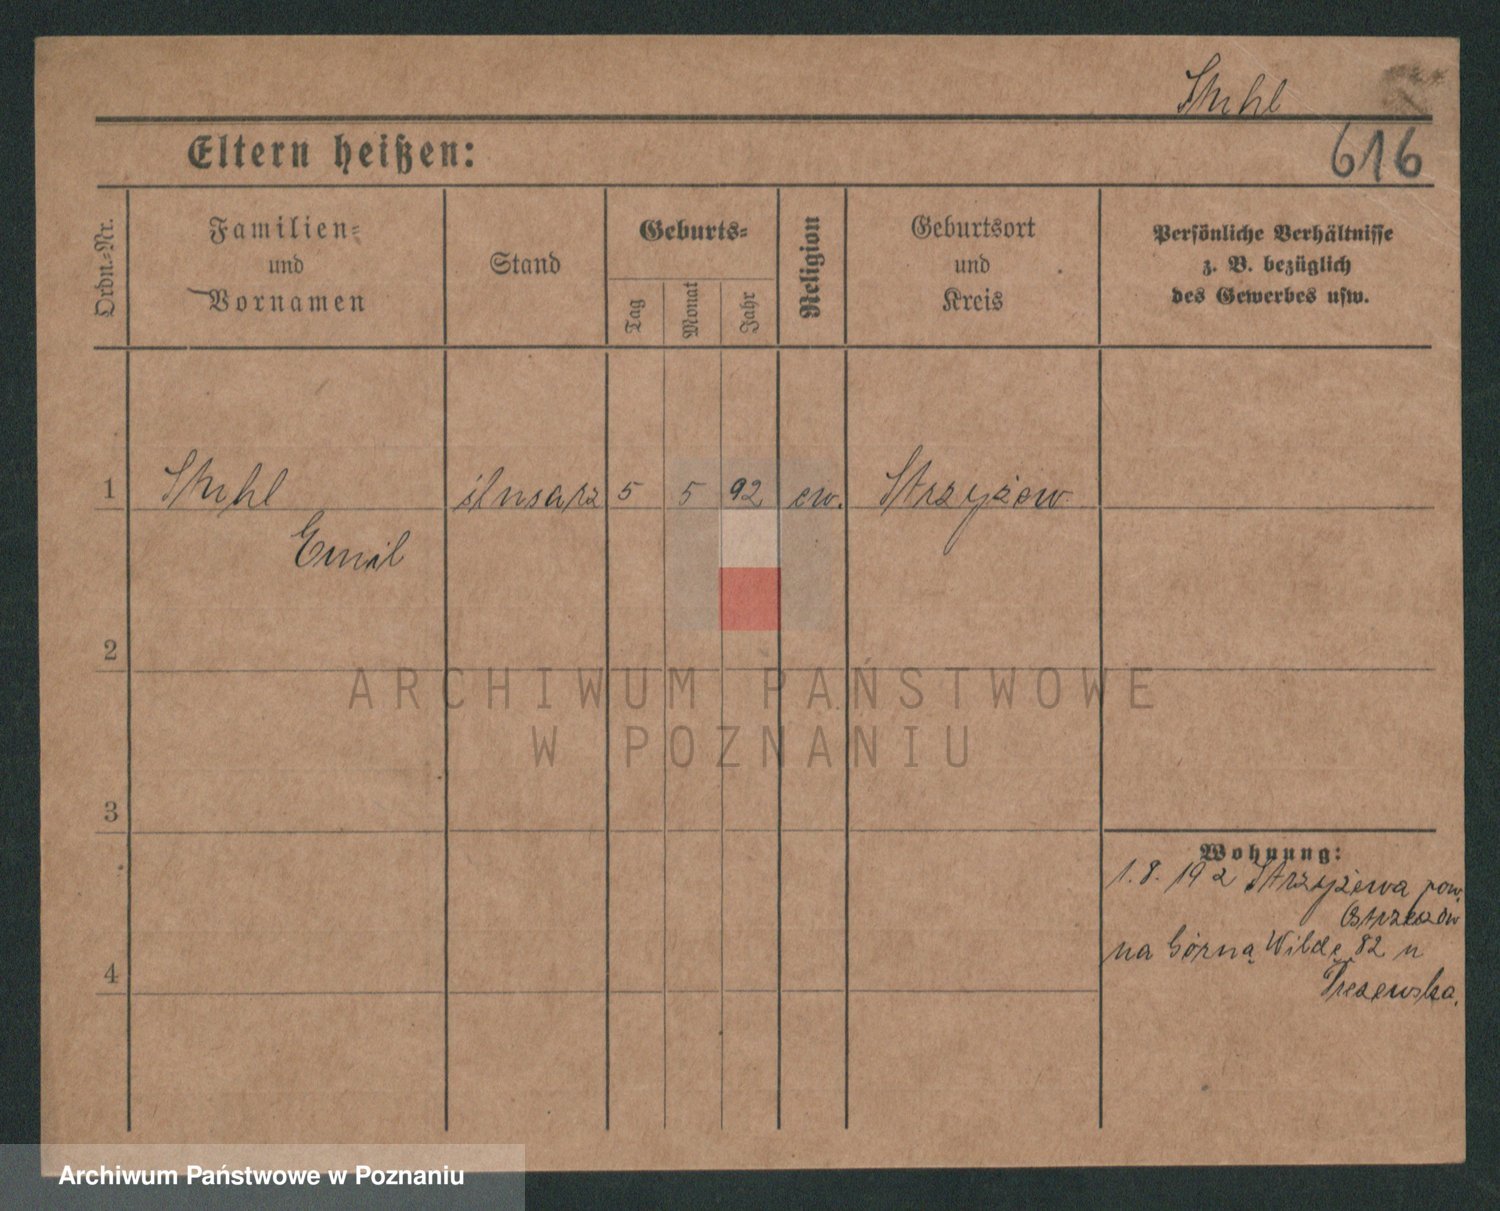 Stuhl
616
Eltern heißen:
Ordn.-Nr.
Familien-
und
Vornamen
Stand
Geburts-
Tag
Monat
Jahr
Religion
Geburtsort
und
Kreis
Persönliche Verhältnisse
z. B. bezüglich
des Gewerbes usw.
1 Stuhl ślusarz 5 5 92 ew. Strzyżew
Emil
2
ARCHIWUM PAŃSTWOWE
W POZNANIU
3
Wohnung:
1. 8. 192 Strzyżewa pow.
Ostrzeszów
4 na Górną Wildę 82 u
Archiwum Państwowe w Poznaniu